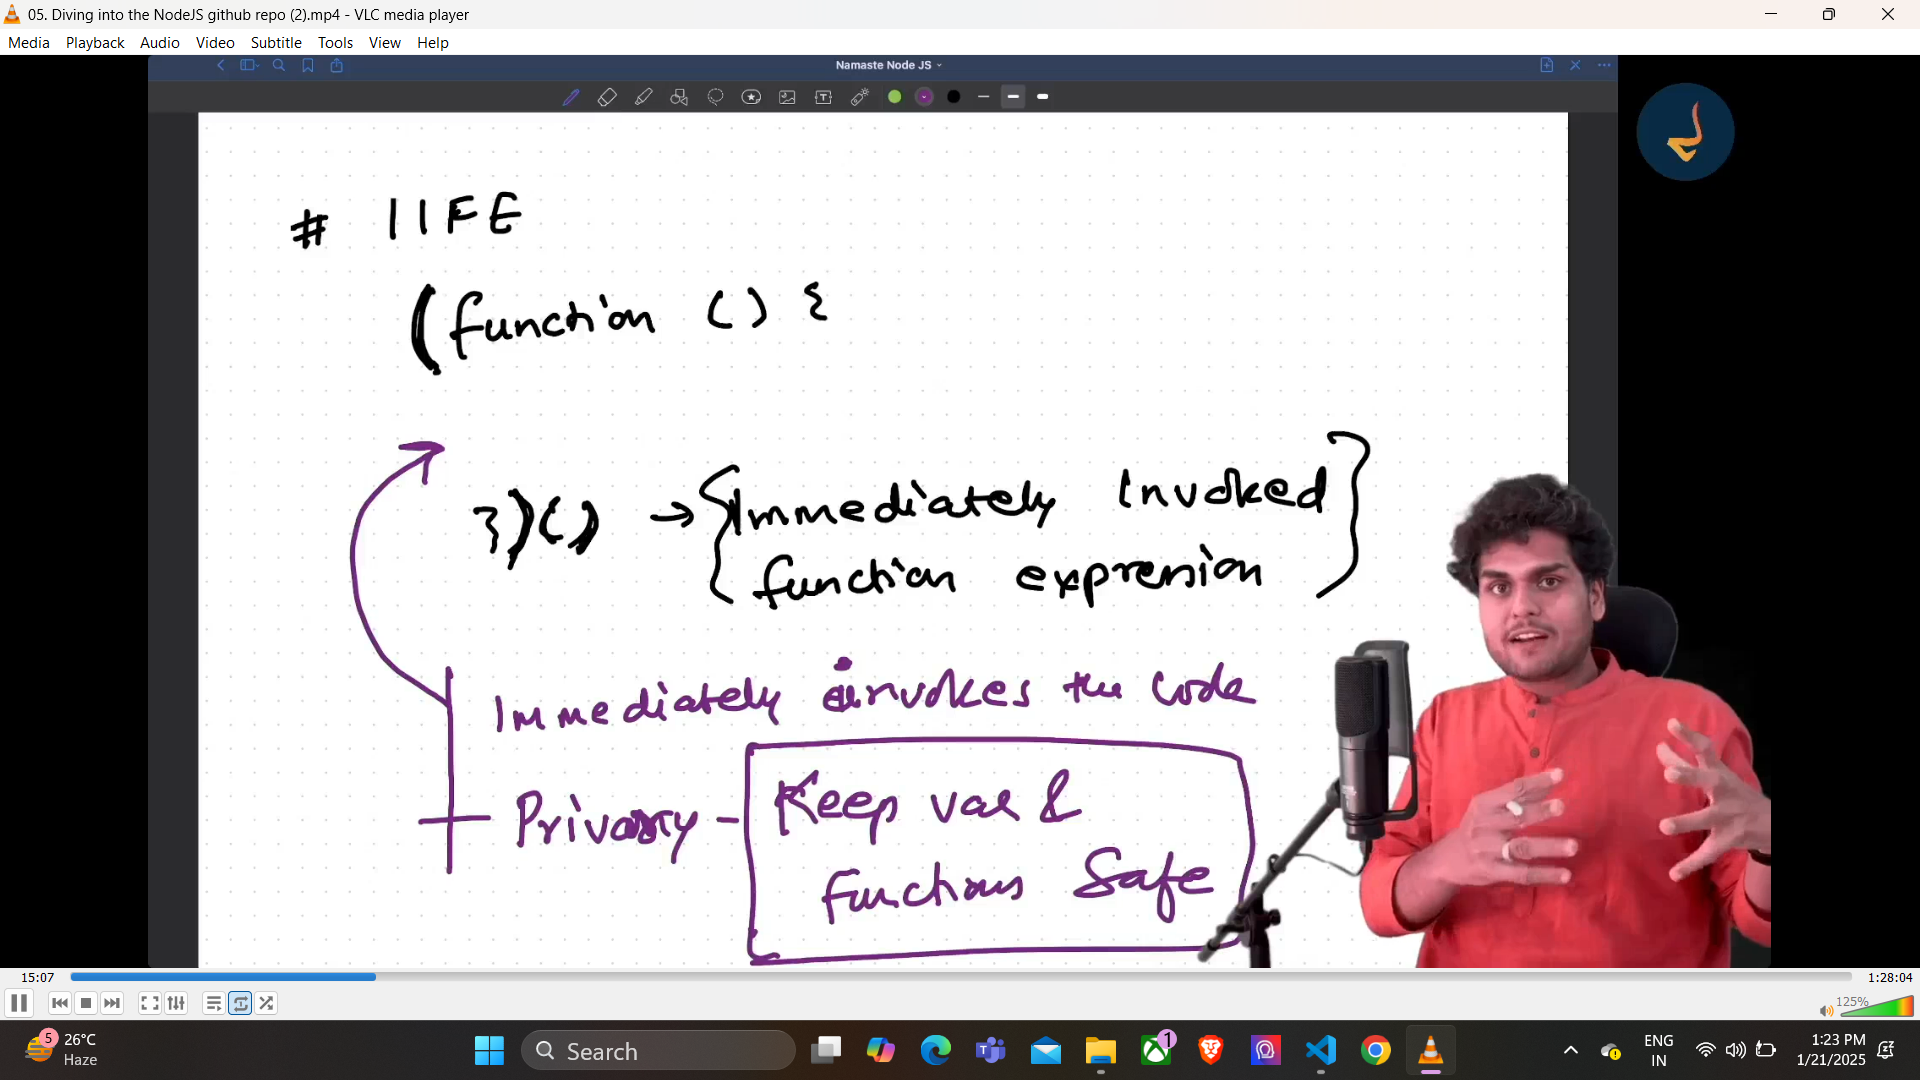 05. Diving into the NodeJS github repo (2).mp4 - VLC media player
Media Playback Audio Video Subtitle Tools View Help
Namaste Node JS
# IIFE
(function () {
})() → { Immediately Invoked
function expression }
Immediately invokes the code
Privacy - Keep var &
functions Safe
15:07
1:28:04
125%
5
26°C
Haze
Search
1
ENG
IN
1:23 PM
1/21/2025